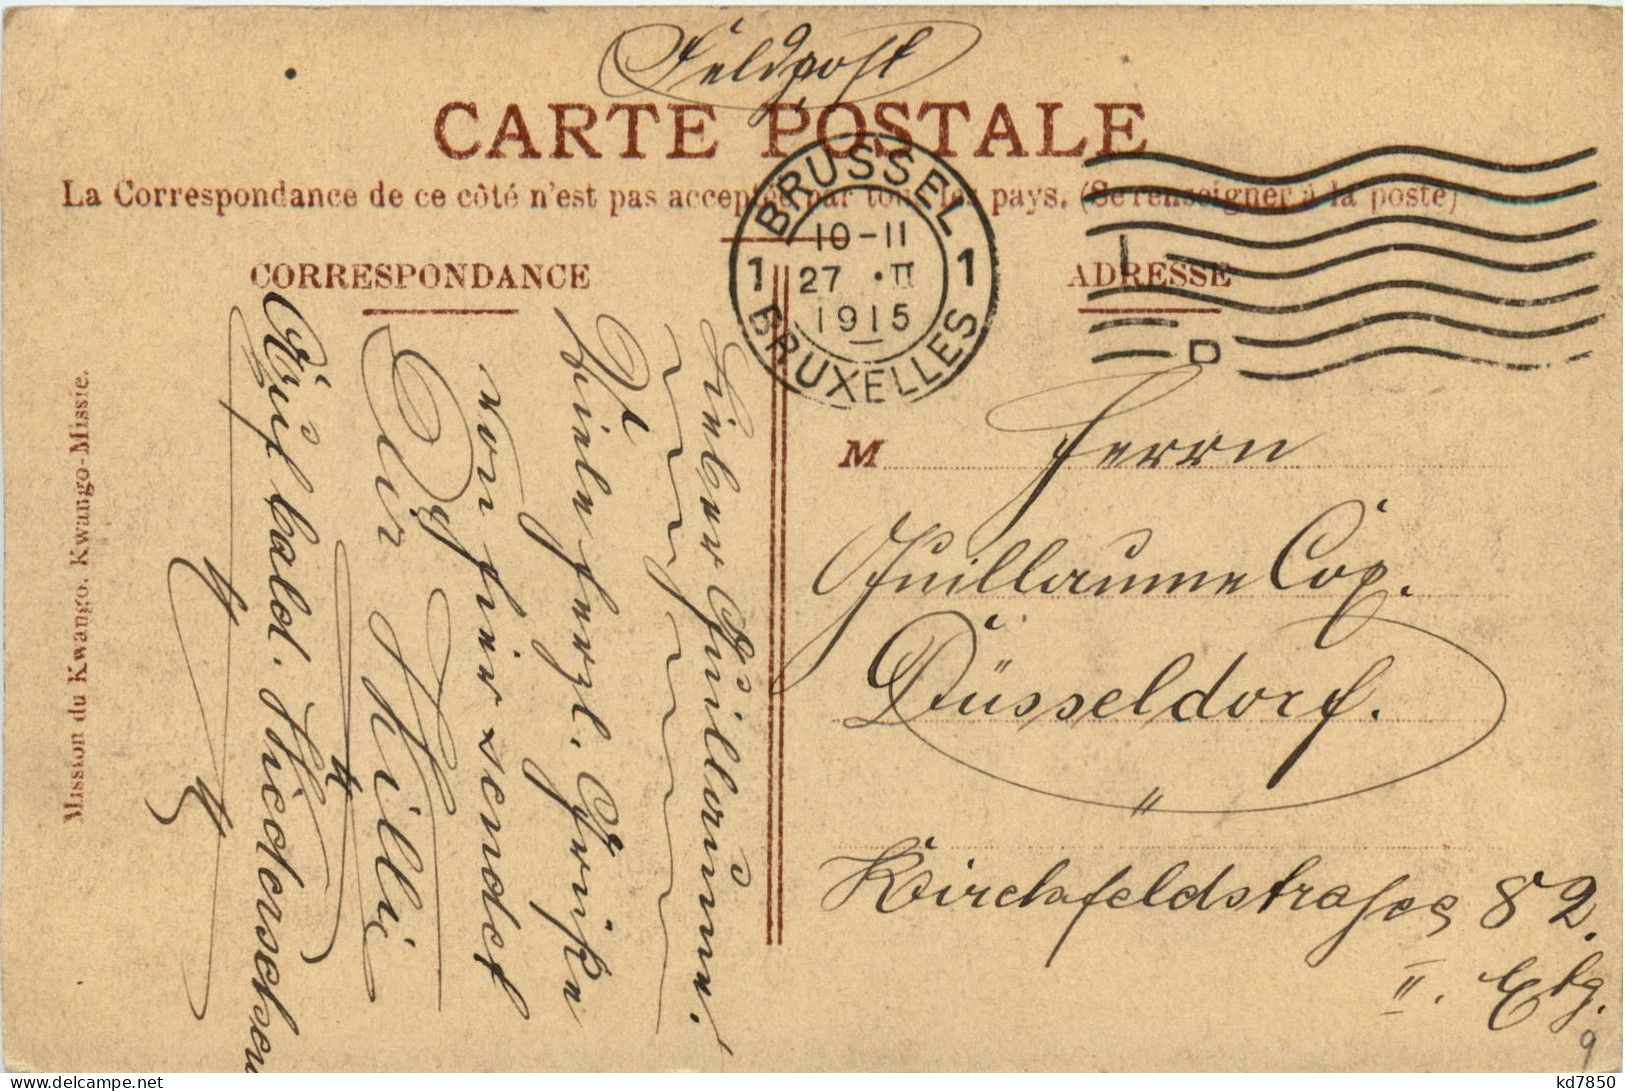 Feldpost
CARTE POSTALE
La Correspondance de ce côté n'est pas acceptée par tous les pays. (Se renseigner à la poste)
BRUSSEL
10-11
1 27 ·II 1
1915
BRUXELLES
CORRESPONDANCE
ADRESSE
Mission du Kwango. Kwango-Missie.
Lieber Guillaume!
Viele herzl. Grüße
von hier sendet
Dir Willi
Auf bald. Wiedersehen
M Herrn
Guillaume Cox.
Düsseldorf.
Kirchfeldstrasse 82.
II. Etg.
9
kd7850